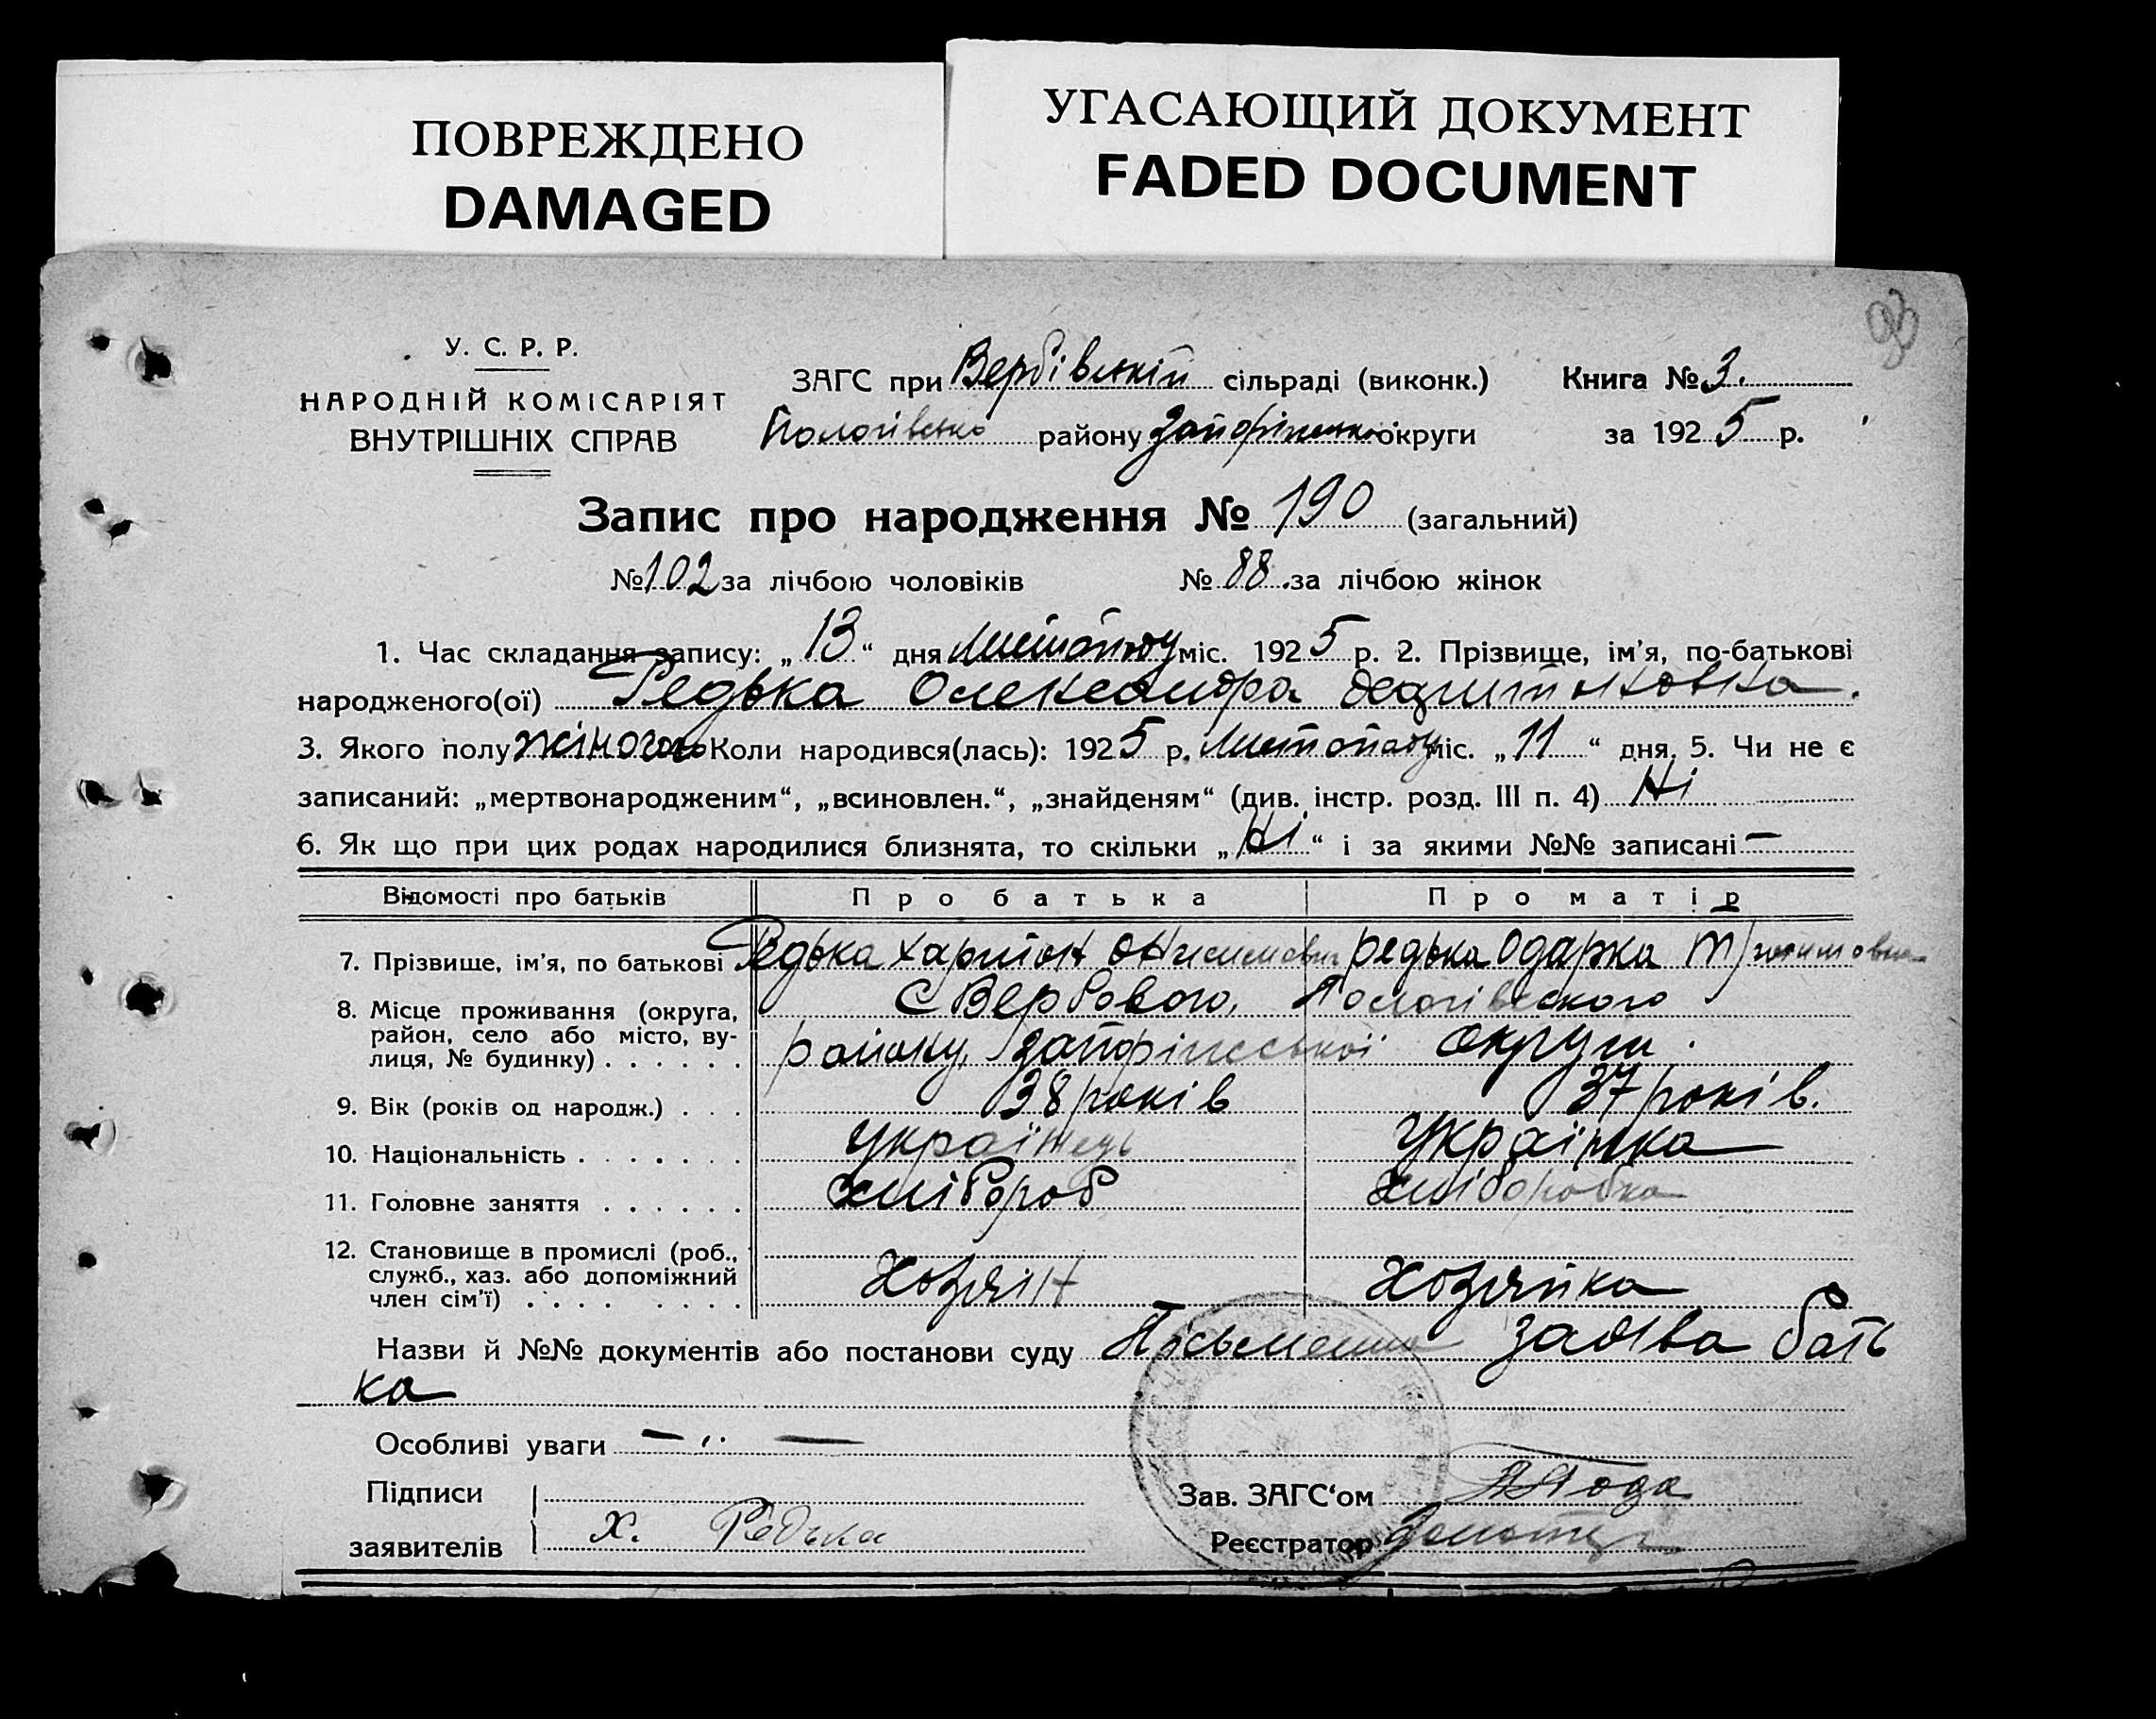 ПОВРЕЖДЕНО
DAMAGED
УГАСАЮЩИЙ ДОКУМЕНТ
FADED DOCUMENT
93
У. С. Р. Р.
НАРОДНІЙ КОМІСАРІЯТ
ВНУТРІШНІХ СПРАВ
ЗАГС при Вербівській сільраді (виконк.) Книга № 3.
району округи за 1925 р.
Запис про народження № 190 (загальний)
№ 102 за лічбою чоловіків № 88 за лічбою жінок
1. Час складання запису: „13“ дня Листопаду міс. 1925 р. 2. Прізвище, ім'я, по-батькові
народженого(ої) Редька Олександра
3. Якого полу жіночого Коли народився(лась): 1925 р. Листопаду міс. „11“ дня. 5. Чи не є
записаний: „мертвонародженим“, „всиновлен.“, „знайденям“ (див. інстр. розд. III п. 4) Ні
6. Як що при цих родах народилися близнята, то скільки „Ні“ і за якими №№ записані —
Відомості про батьків Про батька Про матір
7. Прізвище, ім'я, по батькові Редька Харитон Онисимович Редька Одарка
8. Місце проживання (округа, с Вербового, Пологівського
район, село або місто, ву-
лиця, № будинку) . . . . . . району, Запоріжської округи.
9. Вік (років од народж.) . . . 38 років 37 років.
10. Національність . . . . . . . українець українка
11. Головне заняття . . . . . . хлібороб хліборобка
12. Становище в промислі (роб.,
служб., хаз. або допоміжний
член сім'ї) . . . . . . . . Хозяін Хозяйка
Назви й №№ документів або постанови суду Пісьменна заява бать
ка
Особливі уваги — ,, —
Підписи Зав. ЗАГС'ом
заявителів Х. Редька Реєстратор